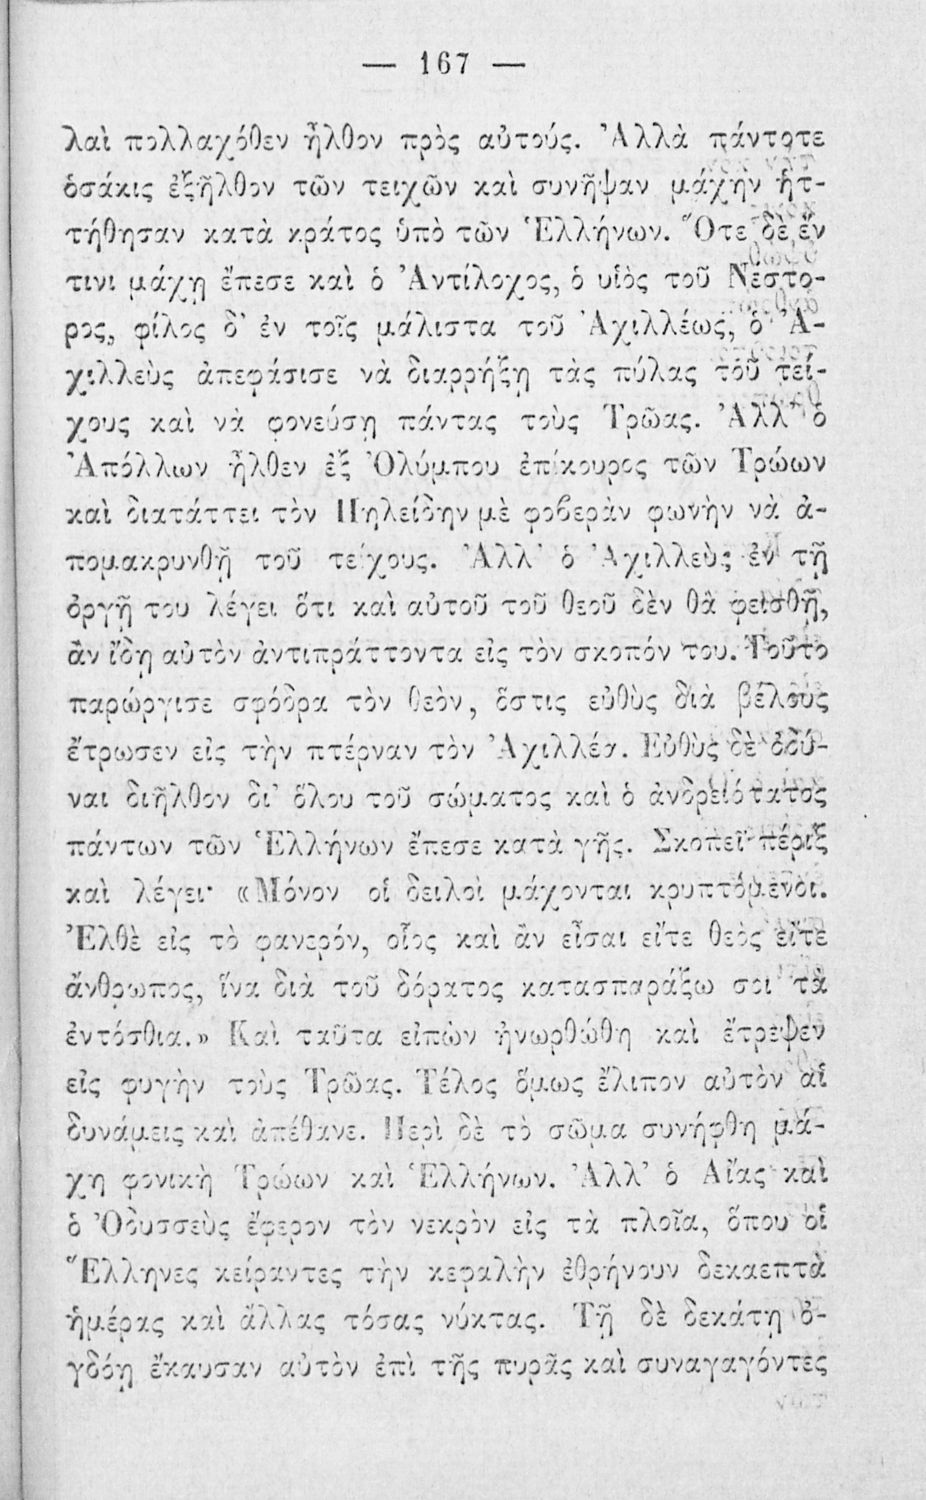 — 167 —
λαὶ πολλαχόθεν ἦλθον πρὸς αὐτούς. Ἀλλὰ πάντοτε
ὁσάκις ἐξῆλθον τῶν τειχῶν καὶ συνῆψαν μάχην ἡτ-
τήθησαν κατὰ κράτος ὑπὸ τῶν Ἑλλήνων. Ὅτε δὲ ἔν
τινι μάχῃ ἔπεσε καὶ ὁ Ἀντίλοχος, ὁ υἱὸς τοῦ Νέστο-
ρος, φίλος δ' ἐν τοῖς μάλιστα τοῦ Ἀχιλλέως, ὁ Ἀ-
χιλλεὺς ἀπεφάσισε νὰ διαρρήξῃ τὰς πύλας τοῦ τεί-
χους καὶ νὰ φονεύσῃ πάντας τοὺς Τρῶας. Ἀλλ' ὁ
Ἀπόλλων ἦλθεν ἐξ Ὀλύμπου ἐπίκουρος τῶν Τρώων
καὶ διατάττει τὸν Πηλείδην μὲ φοβερὰν φωνὴν νὰ ἀ-
πομακρυνθῇ τοῦ τείχους. Ἀλλ' ὁ Ἀχιλλεὺς ἐν τῇ
ὀργῇ του λέγει ὅτι καὶ αὐτοῦ τοῦ θεοῦ δὲν θὰ φεισθῇ,
ἂν ἴδῃ αὐτὸν ἀντιπράττοντα εἰς τὸν σκοπόν του. Τοῦτο
παρώργισε σφόδρα τὸν θεὸν, ὅστις εὐθὺς διὰ βέλους
ἔτρωσεν εἰς τὴν πτέρναν τὸν Ἀχιλλέα. Εὐθὺς δὲ ὀδύ-
ναι διῆλθον δι' ὅλου τοῦ σώματος καὶ ὁ ἀνδρειότατος
πάντων τῶν Ἑλλήνων ἔπεσε κατὰ γῆς. Σκοπεῖ πέριξ
καὶ λέγει· «Μόνον οἱ δειλοὶ μάχονται κρυπτόμενοι.
Ἐλθὲ εἰς τὸ φανερόν, οἷος καὶ ἂν εἶσαι εἴτε θεὸς εἴτε
ἄνθρωπος, ἵνα διὰ τοῦ δόρατος κατασπαράξω σοι τὰ
ἐντόσθια.» Καὶ ταῦτα εἰπὼν ἠνωρθώθη καὶ ἔτρεψεν
εἰς φυγὴν τοὺς Τρῶας. Τέλος ὅμως ἔλιπον αὐτὸν αἱ
δυνάμεις καὶ ἀπέθανε. Περὶ δὲ τὸ σῶμα συνήφθη μά-
χη φονικὴ Τρώων καὶ Ἑλλήνων. Ἀλλ' ὁ Αἴας καὶ
ὁ Ὀδυσσεὺς ἔφερον τὸν νεκρὸν εἰς τὰ πλοῖα, ὅπου οἱ
Ἕλληνες κείραντες τὴν κεφαλὴν ἐθρήνουν δεκαεπτὰ
ἡμέρας καὶ ἄλλας τόσας νύκτας. Τῇ δὲ δεκάτῃ ὀ-
γδόῃ ἔκαυσαν αὐτὸν ἐπὶ τῆς πυρᾶς καὶ συναγαγόντες